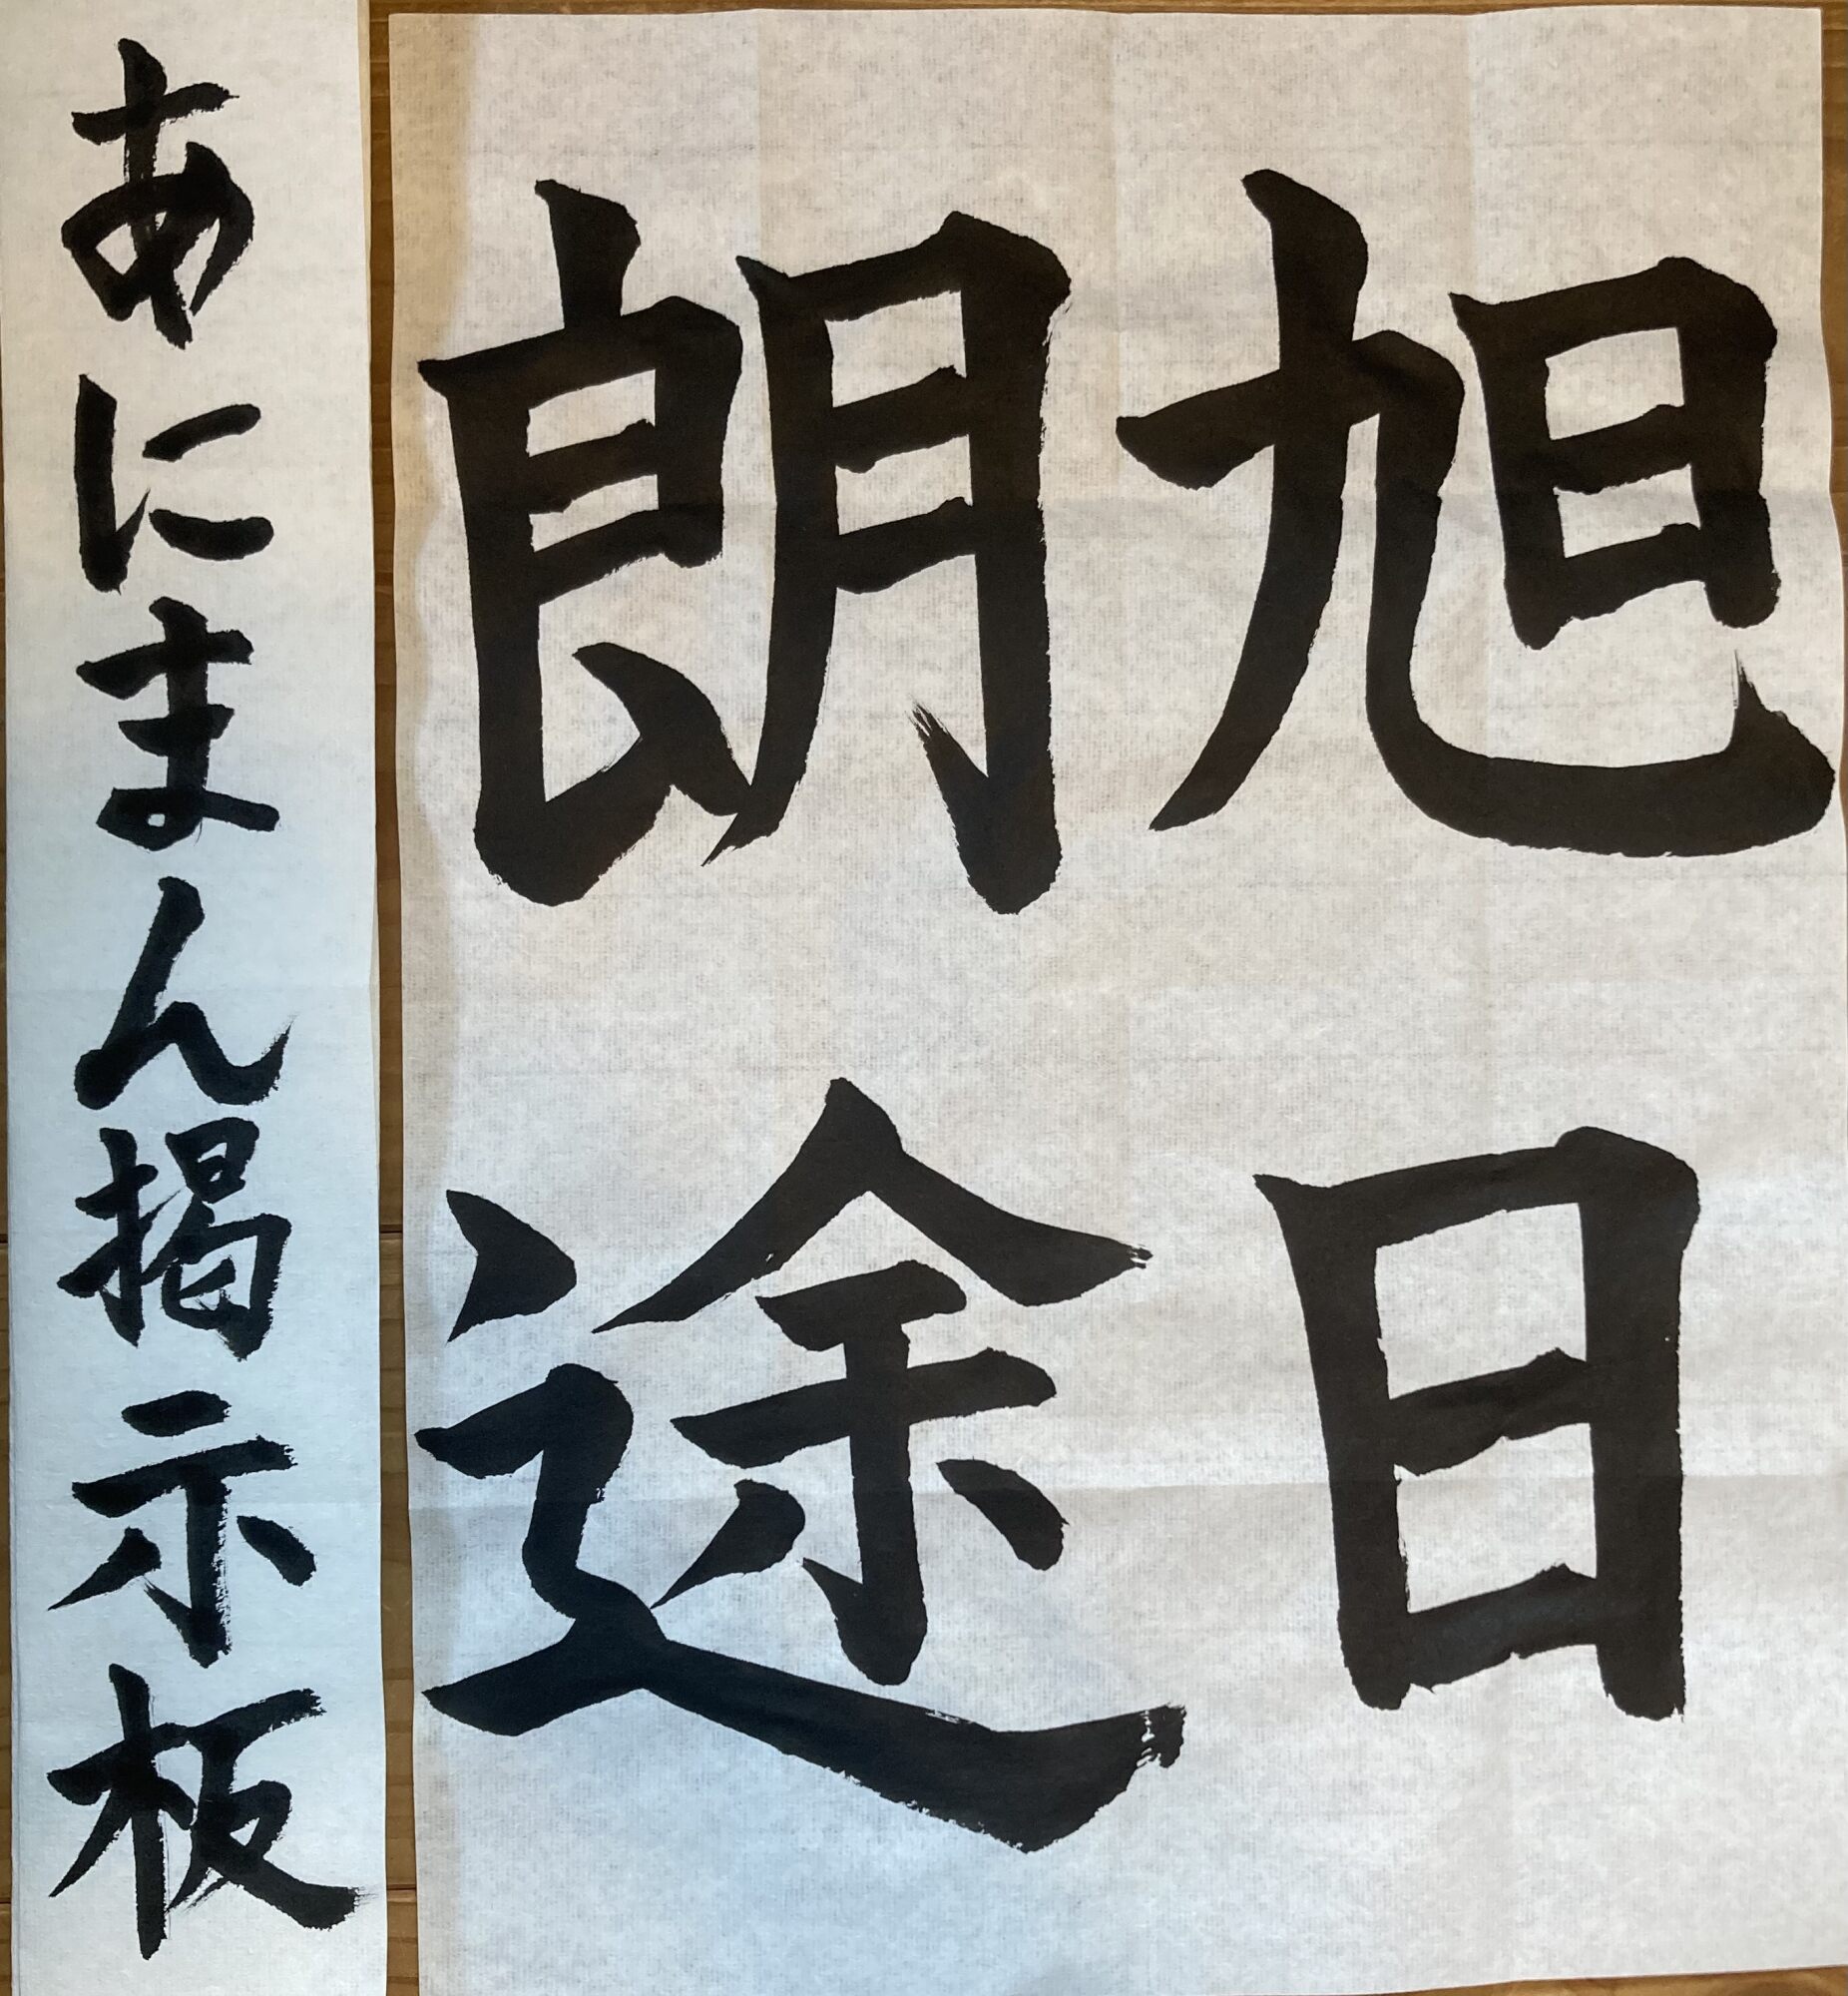 旭日
朗途
あにまん掲示板